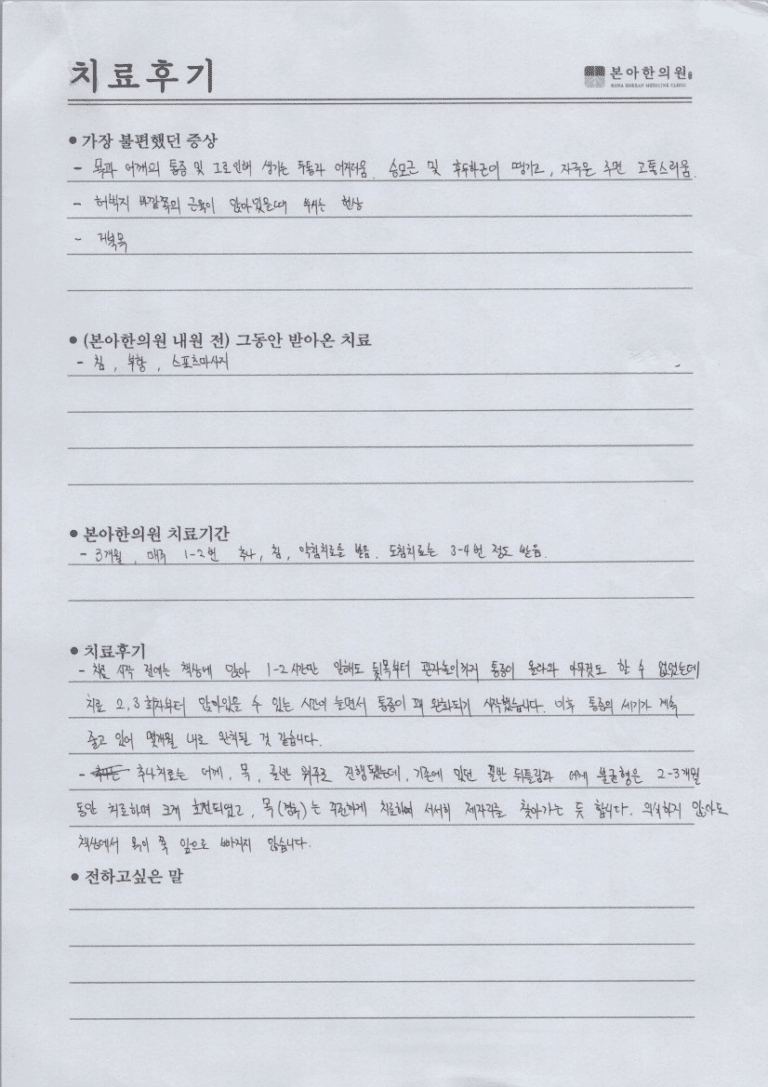 치료후기
본아한의원
BONA KOREAN MEDICINE CLINIC
● 가장 불편했던 증상
- 목과 어깨의 통증 및 그로인해 생기는 두통과 어지러움. 승모근 및 후두하근이 땡기고, 자극을 주면 고통스러움.
- 허벅지 바깥쪽의 근육이 앉아있을때 현상
- 거북목
● (본아한의원 내원 전) 그동안 받아온 치료
- 침, 부항, 스포츠마사지
● 본아한의원 치료기간
- 3개월, 매주 1-2번 추나, 침, 약침치료를 받음. 도침치료는 3-4번 정도 받음.
● 치료후기
- 치료 시작 전에는 책상에 앉아 1-2시간만 일해도 뒷목부터 관자놀이까지 통증이 올라와 아무것도 할 수 없었는데
치료 2,3회차부터 앉아있을 수 있는 시간이 늘면서 통증이 꽤 완화되기 시작했습니다. 이후 통증의 세기가 계속
줄고 있어 몇개월 내로 완치될 것 같습니다.
- 추나치료는 어깨, 목, 골반 위주로 진행됐는데, 기존에 있던 골반 뒤틀림과 어깨 불균형은 2-3개월
동안 치료하며 크게 호전되었고, 목(경추)는 꾸준하게 치료하며 서서히 제자리를 찾아가는 듯 합니다. 의식하지 않아도
책상에서 목이 쭉 앞으로 빠지지 않습니다.
● 전하고싶은 말